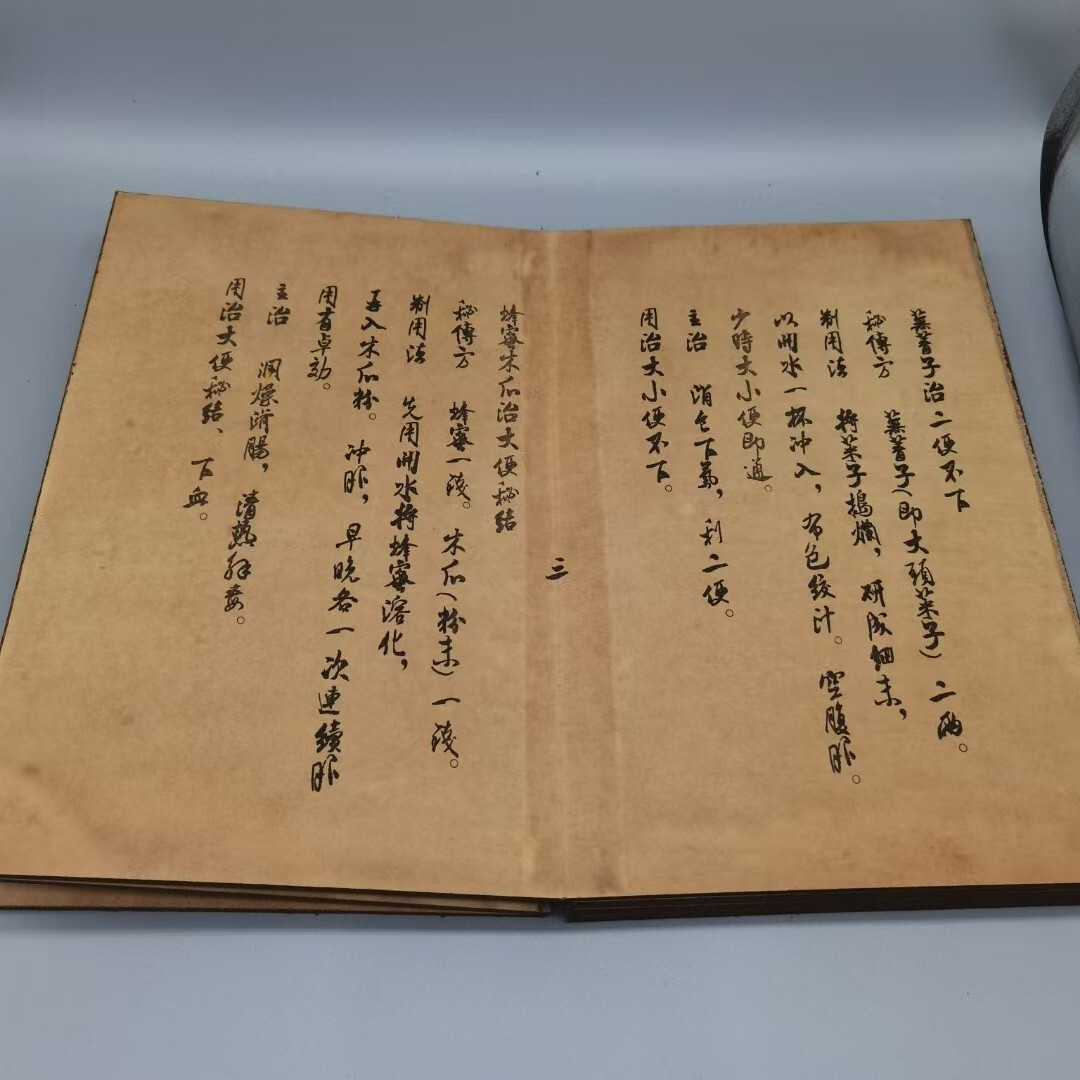 蕪菁子治二便不下
秘傳方　蕪菁子（即大頭菜子）二兩。
制用法　將菜子搗爛，研成細末，
以開水一杯冲入，布包絞汁。空腹服。
少時大小便即通。
主治　消乞下氣，利二便。
用治大小便不下。
三
蜂蜜木瓜治大便秘結
秘傳方　蜂蜜一錢。木瓜（粉末）一錢。
制用法　先用開水將蜂蜜溶化，
再入木瓜粉。冲服，早晚各一次連續服
用有卓効。
主治　潤燥滑腸，清熱解毒。
用治大便秘結、下血。